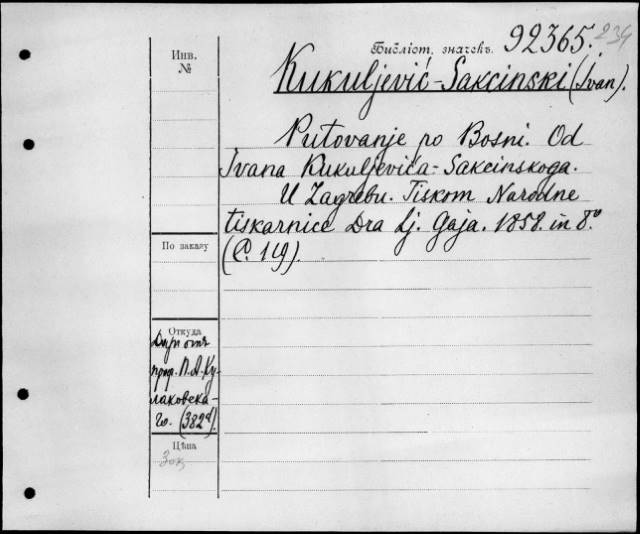 Инв.
№
Библіот. значекъ. 92365. 239
Kukuljević-Sakcinski (Ivan).
Putovanje po Bosni. Od
Ivana Kukuljevića-Sakcinskoga.
U Zagrebu. Tiskom Narodne
tiskarnice Dra Lj. Gaja. 1858. in 8º
(C. 119).
По заказу
Откуда
Даръ отъ
проф. П. А. Ку-
лаковска-
го. (382д).
Цѣна